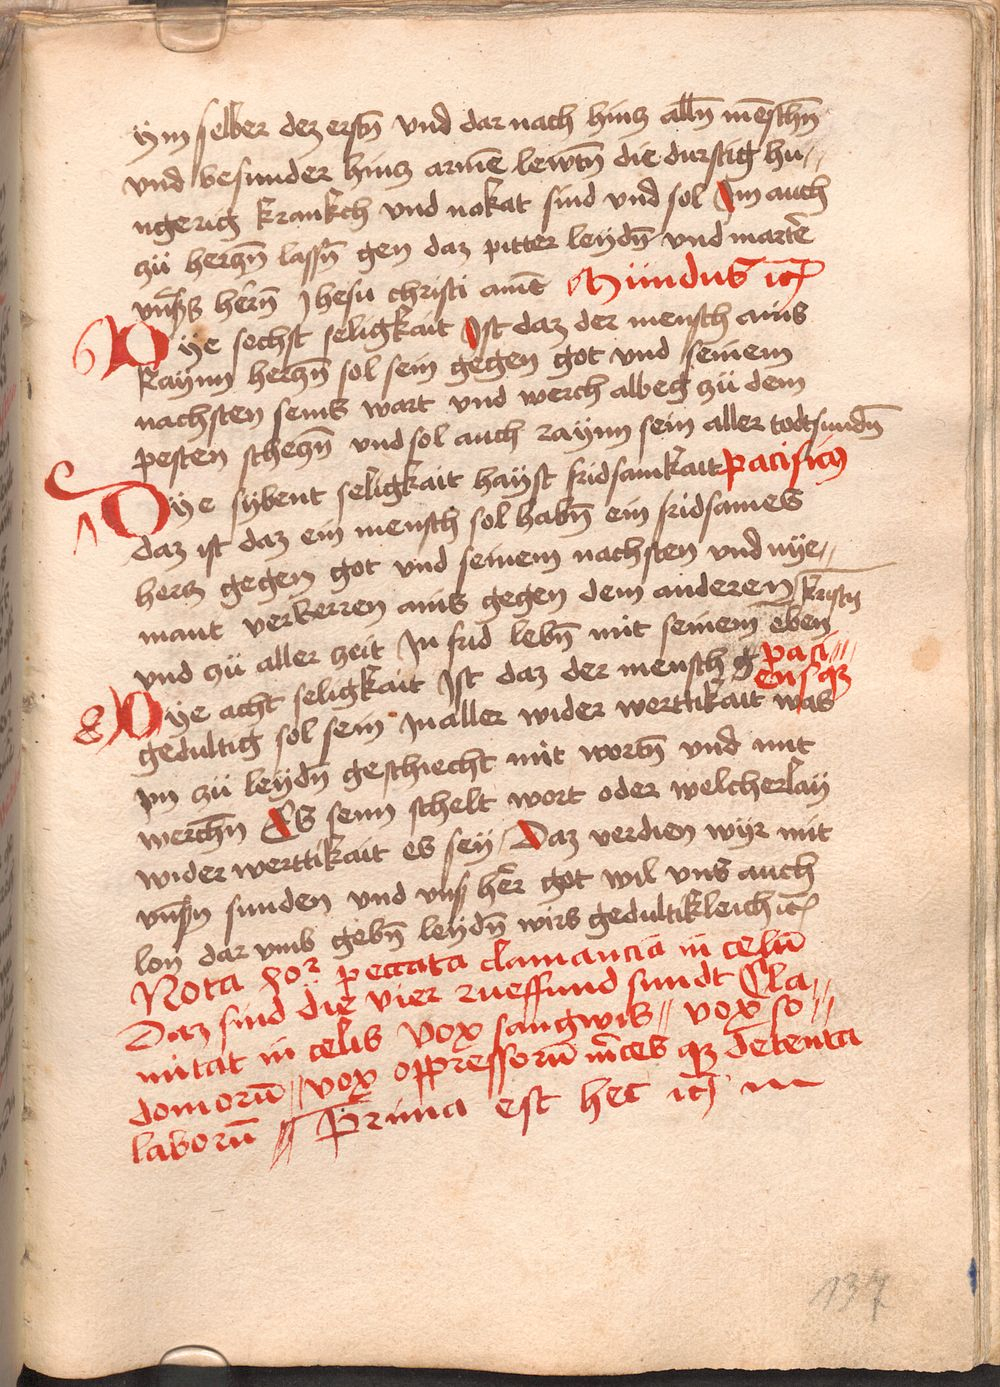 ym selber dez erstn̄ vnd dar nach hincz alln̄ mēschn̄
vnd besunder hincz armē lewtn̄ die durstig hu//
ngerig kranckch vnd nakat sind vnd sol Im auch
zü herczn̄ lassn̄ gen daz pitter leydn̄ vnd marter
vnsers herrn̄ Jhesu christi amē Mundus ꝛc
6 Dye sechst seligkait Ist daz der mensch ains
raynn herczn̄ sol sein gegen got vnd seinem
nachsten seins wart vnd werch albeg zü dem
pesten scheczn̄ vnd sol auch raynn sein aller todtsundn̄
Λ Dye sybent seligkait hayst fridsamkait pacificus
daz ist daz ein mensch sol habn̄ ein fridsames
hercz gegen got vnd seinem nachsten vnd nye//
mant verkerren ains gegen dem anderen
vnd zü aller zeit In frid lebn̄ mit seinem eben kristn̄
8 Dye acht seligkait Ist daz der mensch g paci//
ensqz
gedultig sol sein In aller wider werttikait was
yn zü leydn̄ geschiecht mit wortn̄ vnd mit
werchn̄ Es senn schelt wort oder welcherlay
wider werttikait es sey / Daz verdien wyr mit
vnsern sunden vnd vnser her got wil vns auch
lon dar vmb gebn̄ leydn̄ wirs gedultikleich ꝛc
Nota 4or peccata clamancia in celū
Daz sind die vier rueffund sundt Cla//
mitat in celis vox sangwis // vox so//
domorū // vox oppressorū m̄ces qz detenta
laborū // Prima est hec ꝛc
137